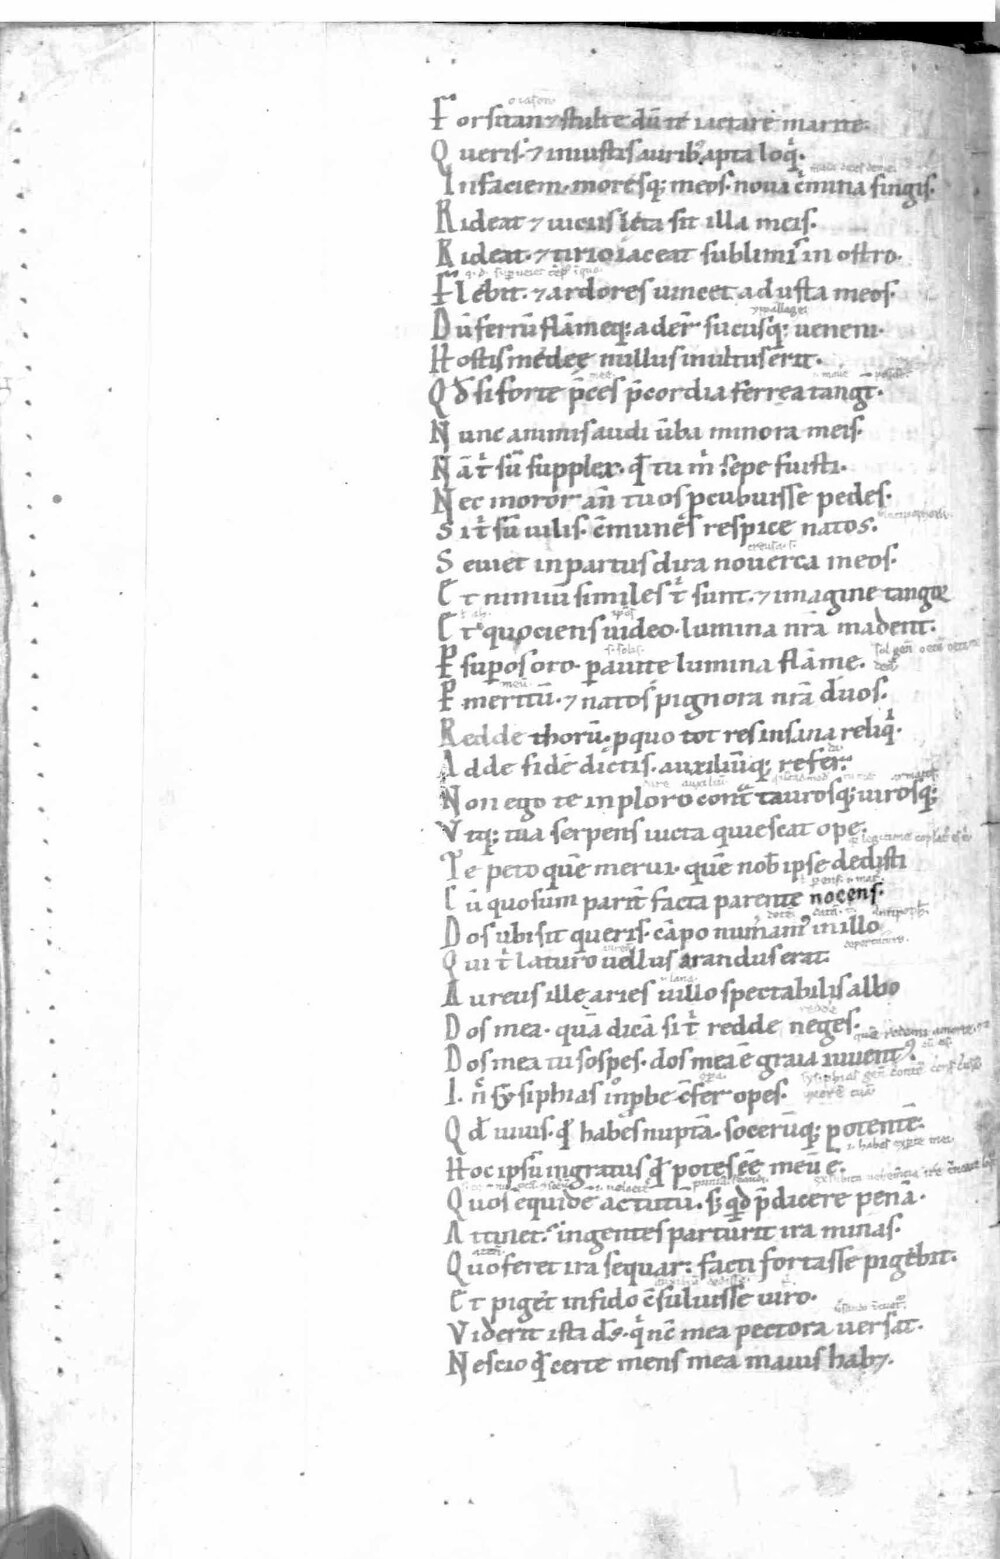 Forsitan ⁊ stulte dū te iactare marite
Queris· ⁊ iniustis aurib; apta loq̄·
In faciem· moresq; meos· noua c̄mina fingis·
Rideat ⁊ uiciis lęta sit illa meis·
Rideat· ⁊ tirio iaceat sublimis in ostro·
Flebit· ⁊ ardores uincet adusta meos·
Dū ferrū flāmeq; ader̄ sucusq; ueneni·
Hostis medeę nullus inultus erit·
Qđ si forte p̄ces p̄cordia ferrea tangt̄·
Nunc animis audi ūba minora meis·
Nā t̄ sū supplex· qđ tu m̄ sepe fuisti·
Nec moror an̄ tuos p̱cubuisse pedes·
Si t̄ sū uilis· c̄munes respice natos·
Seuiet in partus dira nouerca meos·
Et nimiū similes t̄ sunt· ⁊ imagine tangor
Et quociens uideo· lumina nr̄a madent·
P̱ sup̱os oro· p̱ auite lumina flāme·
P̱ meritū· ⁊ natos pignora nr̄a duos·
Redde thorū· p̱ quo tot res insana reliq̄·
Adde fidē dictis· auxiliūq; refer·
Non ego te inploro cont̄ taurosq; uirosq;
Vtq; tua serpens uicta quiescat ope·
Te peto quē merui· quē nob̄ ipse dedisti
Cū quo sum parit̄ facta parente nocens·
Dos ubi sit queris· cāpo numeram' in illo
Qui t̄ laturo uellus arandus erat·
Aureus ille aries uillo spectabilis albo
Dos mea· quā dicā si t̄ redde neges·
Dos mea tu sospes· dos mea ē graia iuuent'
I· n̄c sysiphias inp̱be c̄fer opes·
Qđ uiuis· qđ habes nuptā· socerūq; potentē·
Hoc ipsū ingratus qđ potes eē meū ē·
Quos equidē actutū· sꝫ qđ p̄dicere penā·
Attinet· ingentes parturit ira minas·
Quo feret ira sequar: facti fortasse pigebit·
Et piget infido c̄suluisse uiro·
Viderit ista ds̄· q̄ nc̄ mea pectora uersat·
Nescio qđ certe mens mea maius hab⁊·